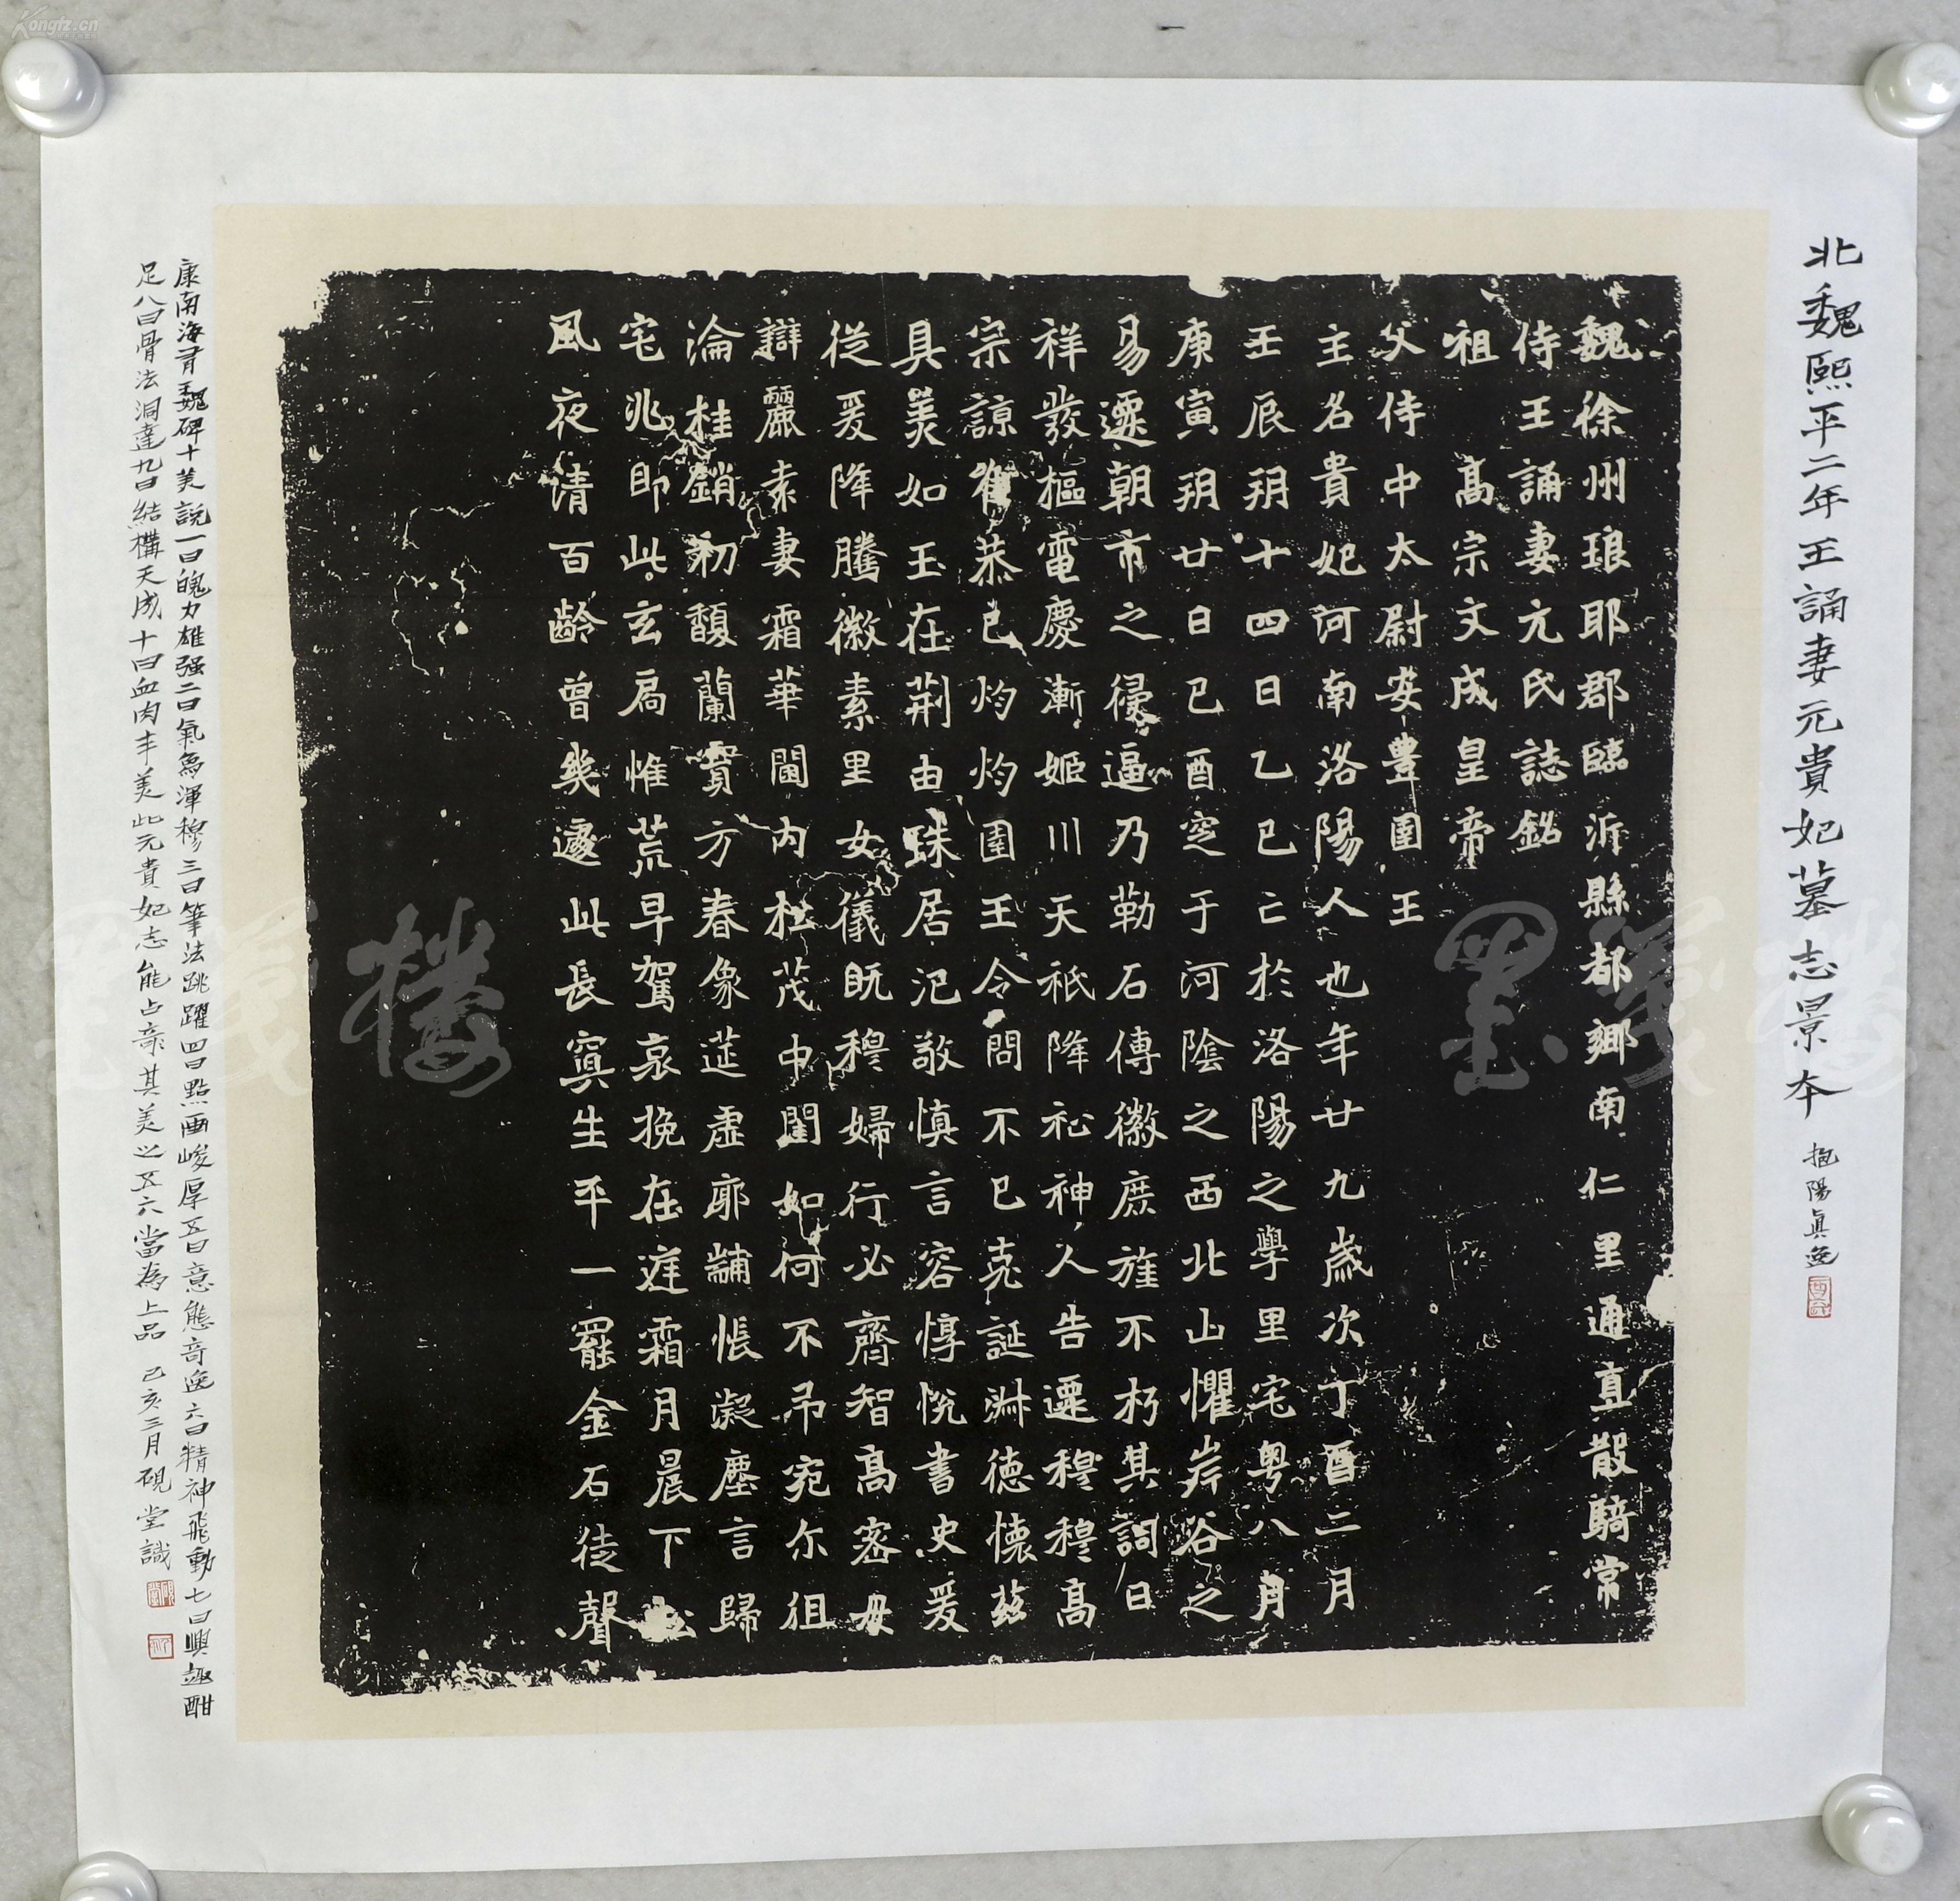 北魏熙平二年王誦妻元貴妃墓志景本 抱陽真逸
魏徐州琅耶郡臨沂縣都鄉南仁里通直散騎常
侍王誦妻元氏誌銘
祖 高宗文成皇帝
父侍中太尉安豊圉王
主名貴妃河南洛陽人也年廿九歲次丁酉二月
壬辰玥十四日乙巳亡於洛陽之學里宅粤八月
庚寅玥廿日己酉窆于河陰之西北山懼岸谷之
易遷朝市之侵逼乃勒石傳徽庶旌不朽其詞曰
祥發樞電慶漸姬川天祇降祉神人告遷穆穆高
宗諒唯恭己灼灼圉王令問不已克誕淋德懷茲
具美如玉在荆由珠居汜敬慎言容惇悅書史爰
從爰降騰徽素里女儀既穆婦行必齊智高密母
辯麗袁妻霜華閫內松茂中閨如何不弔宛尒徂
淪桂銷初馥蘭賓方春象筵虛廓黼帳凝塵言歸
宅兆即此玄扃惟荒早駕哀挽在庭霜月晨下松
風夜清百齡曾幾遽此長冥生平一罷金石徒聲
康南海有魏碑十美說一曰魄力雄强二曰氣爲渾穆三曰筆法跳躍四曰點画峻厚五曰意態奇逸六曰精神飛動七曰興趣酣
足八曰骨法洞達九曰結構天成十曰血肉丰美此元貴妃志能占彔其美之五六當為上品 己亥三月硯堂識
Kongfz.cn
墨箋樓
墨箋樓